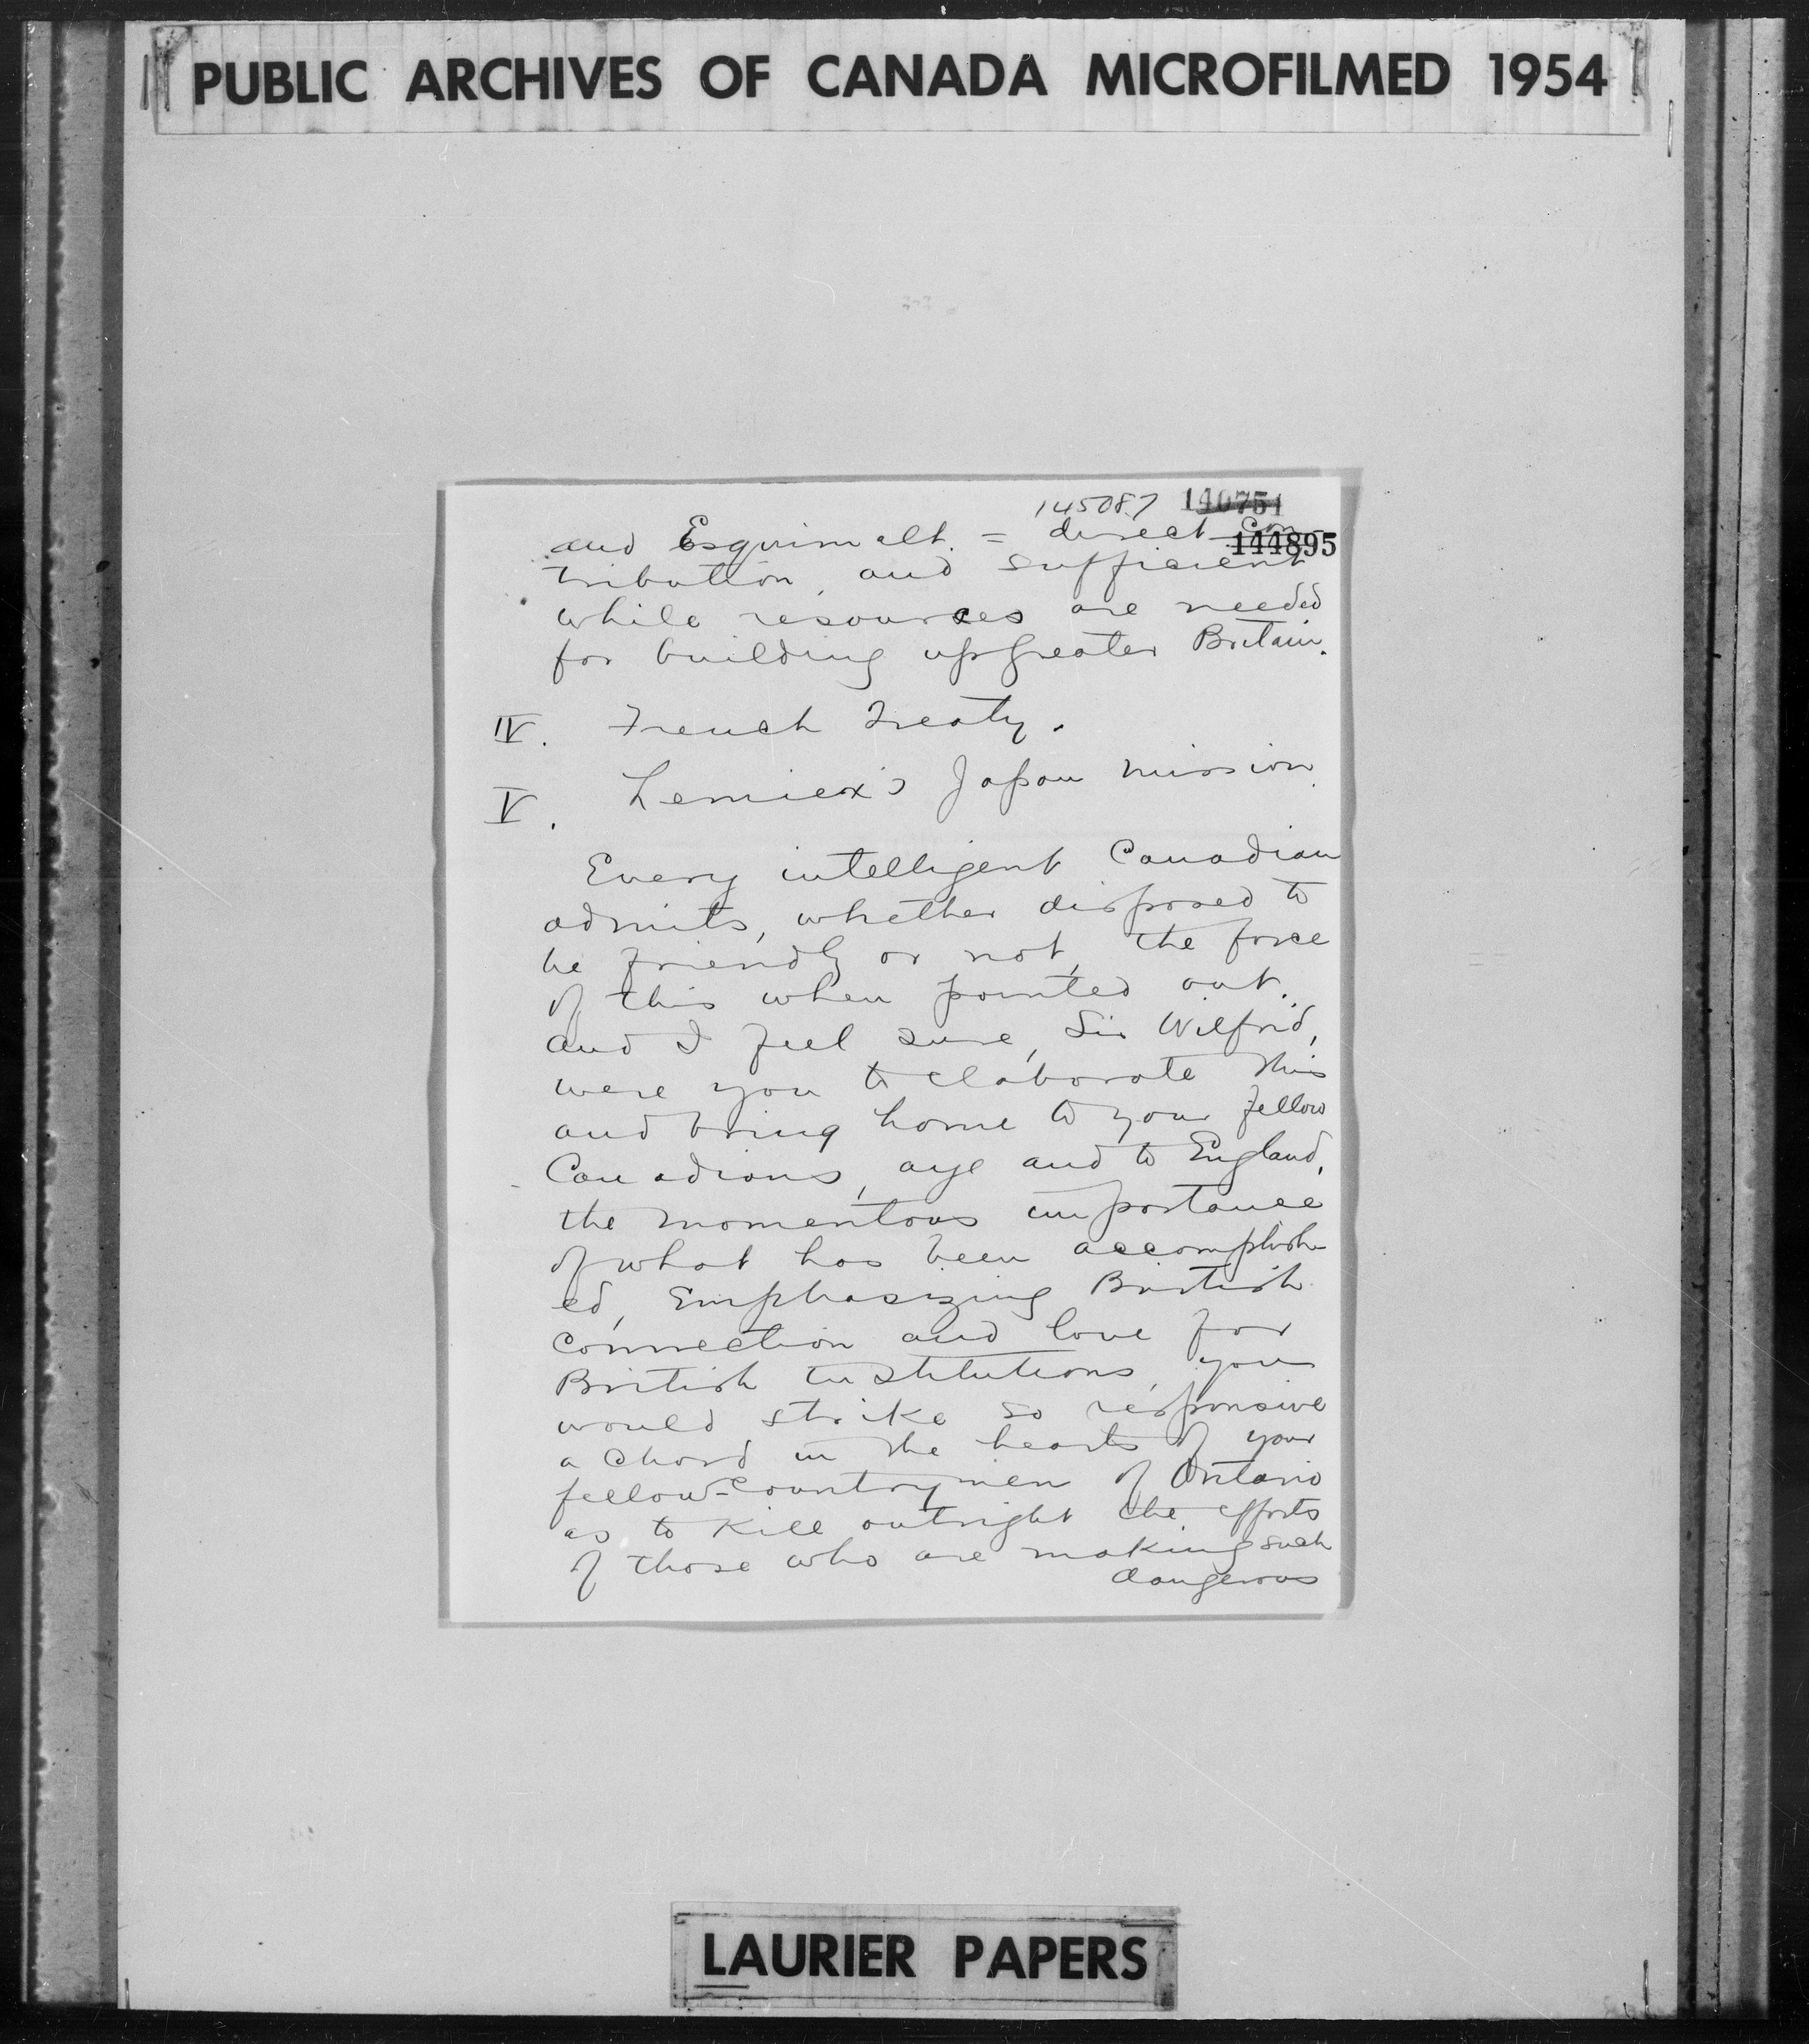 PUBLIC ARCHIVES OF CANADA MICROFILMED 1954
145087 140751
144895
and Esquimalt. = direct con
tribution, and sufficient
while resources are needed
for building up greater Britain.
IV. French Treaty.
V. Lemiex's Japan mission.
Every intelligent Canadian
admits, whether disposed to
be friendly or not, the force
of this when pointed out.
and I feel sure, Sir Wilfrid,
were you to elaborate this
and bring home to your fellow
Canadians, aye and to England,
the momentous importance
of what has been accomplish-
ed, Emphasizing British
connection and love for
British Institutions, you
would strike so responsive
a chord in the hearts of your
fellow-countrymen of Ontario
as to kill outright the efforts
of those who are making such
dangerous
LAURIER PAPERS